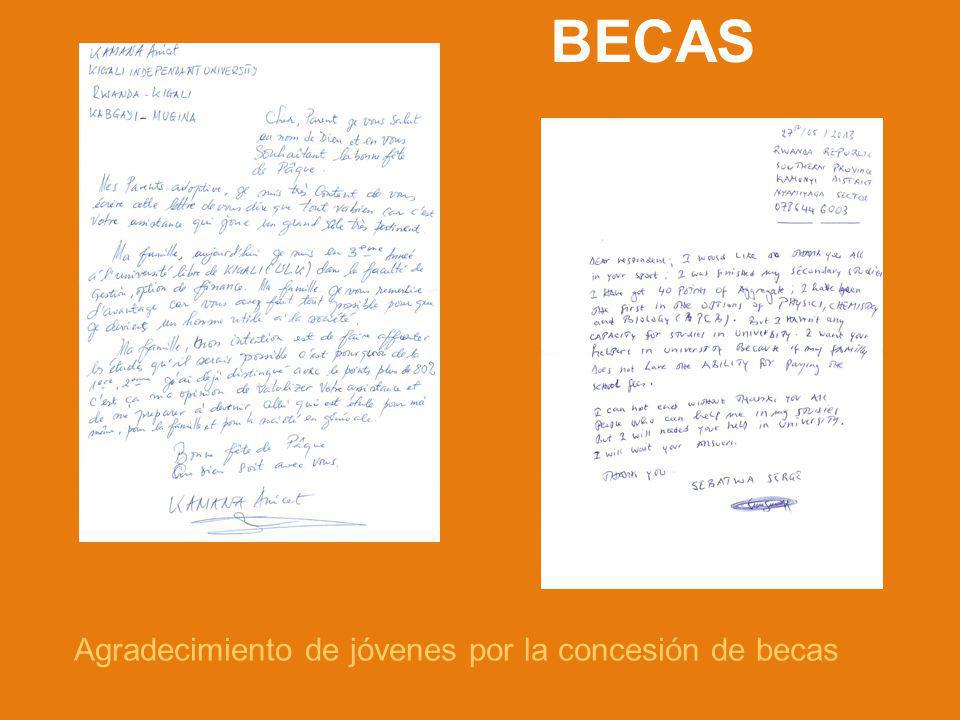 BECAS
KAMANA Anicet
KIGALI INDEPENDANT UNIVERSITY
RWANDA - KIGALI
KABGAYI - MUGINA
Cher, Parent je vous salut
au nom de Dieu et en vous
Souhaitant la bonne fête
de Pâque.
Mes Parents adoptive, je suis très Content de vous
écrire cette lettre de vous dire que tout va bien car c'est
votre assistance qui joue un grand rôle très pertinent.
Ma famille, aujourd'hui je suis en 3eme Année
à l'université libre de KIGALI (ULK) dans la faculté de
Gestion, option de finance. Ma famille, je vous remercie
d'avantage car vous avez fait tout possible pour que
je devient un homme utile à la société.
Ma famille, mon intention est de faire affronter
les études qu'il serais possible c'est pourquoi de la
1ere, 2eme j'ai déjà distingué avec le points plus de 80%
c'est ça ma opinion de valoliser votre assistance et
de me préparer à devenir celui qui est utile pour moi
même, pour la famille et pour la société en générale.
Bonne fête de Pâque
Que Dieu soit avec vous.
KAMANA Anicet
27th/05/2013
RWANDA REPUBLIC
SOUTHERN PROVINC
KAMONYI DISTRICT
NYAMIYAGA SECTOR
078644 6003
DEAR respondent; I would like to THANK you All
in your sport; I was finished my secondary studies
I have got 40 points of Aggregate; I have been
the first in the options of PHYSICS, CHEMISTRY
and Biology (PCB). But I haven't any
CAPACITY for studies in UNIVERSITY. I want your
helpers in UNIVERSITY Because if my FAMILLY
Does not have the ABILITY for paying the
school fees.
I can not end without THANKS you All
people who can help me in my studies
But I will needed your help in University.
I will wait your Answers.
THANK you.
SEBATWA SERGE
Agradecimiento de jóvenes por la concesión de becas